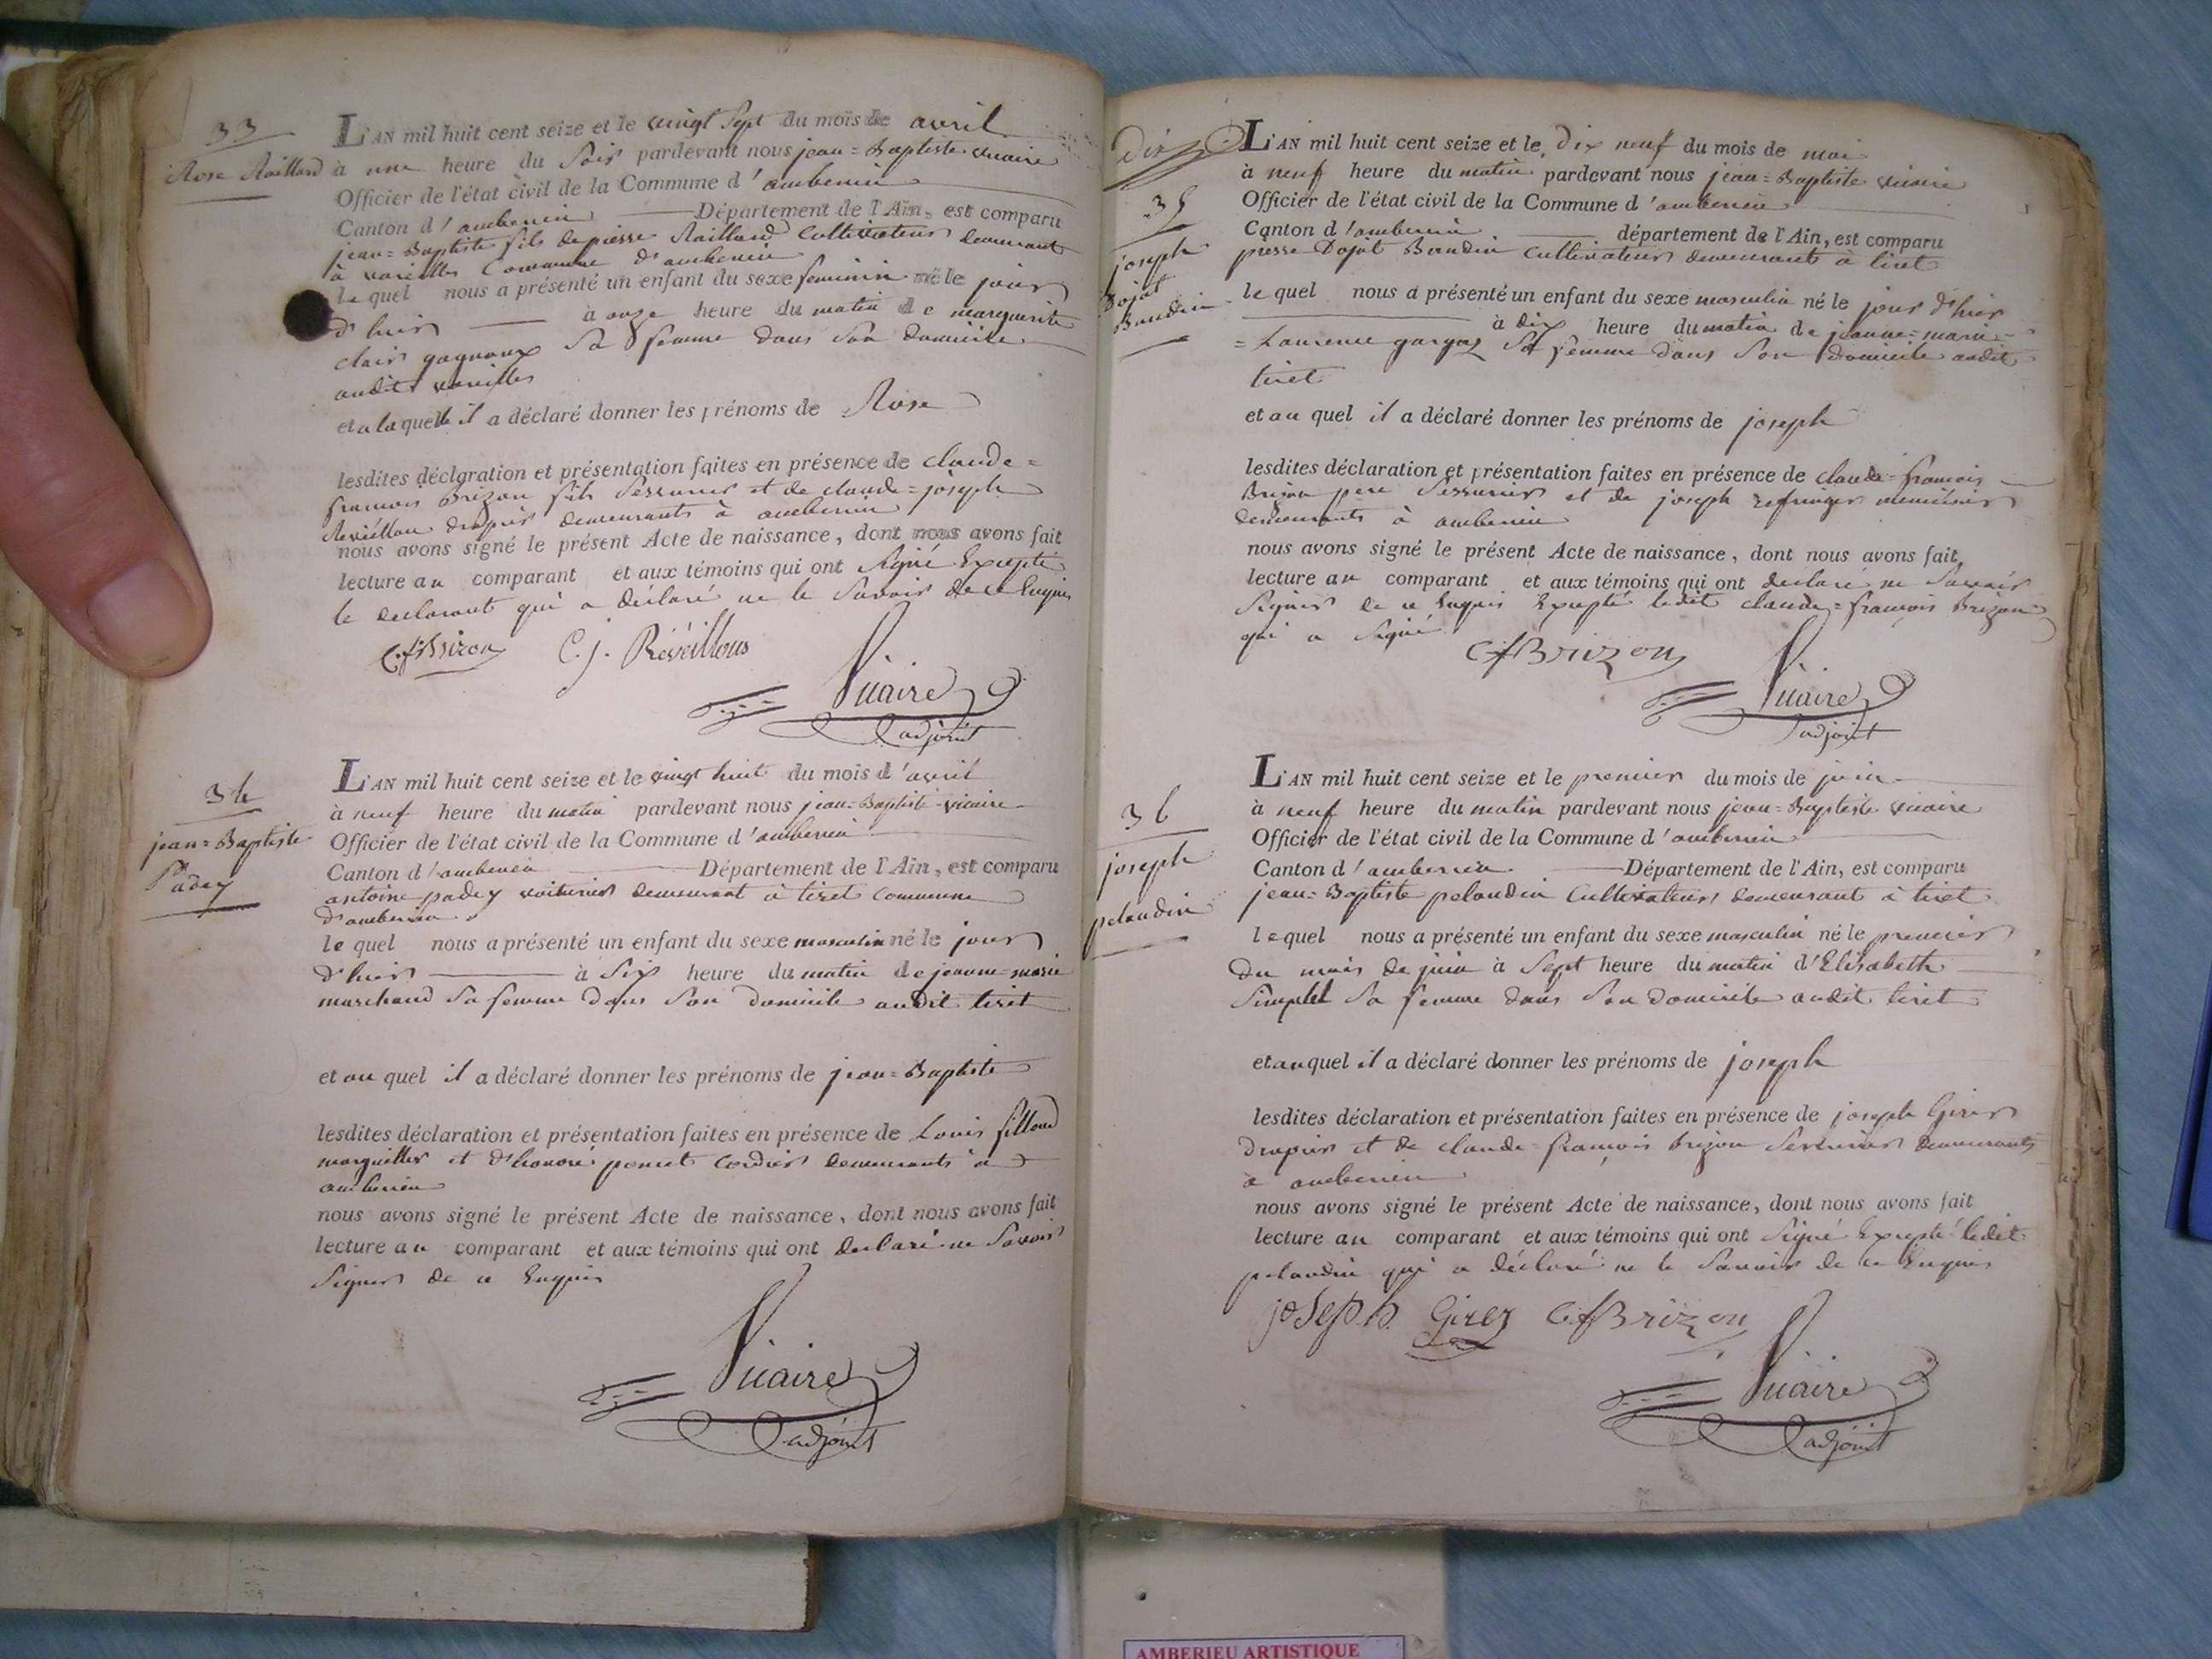 33
Rose Raillard
L'AN mil huit cent seize et le vingt sept du mois de avril
à une heure du soir pardevant nous jean=Baptiste vicaire
Officier de l'état civil de la Commune d'amberieu
Canton d'amberieu Département de l'Ain, est comparu
jean=Baptiste fils de pierre Raillard Cultivateur demeurant
à vareilles Commune d'amberieu
le quel nous a présenté un enfant du sexe feminin né le jour
d'hier à onze heure du matin de marguerite
clair gagnoux sa femme dans son domicile
audit vareilles
et a la quelle il a déclaré donner les prénoms de Rose
lesdites déclaration et présentation faites en présence de claude=
francois Brizon fils serrurier et de claude=joseph
Reveillon drapier demeurants à amberieu
nous avons signé le présent Acte de naissance, dont nous avons fait
lecture au comparant et aux témoins qui ont signé Excepté
le declarant qui a déclaré ne le savoir de ce Enquis
C.f. Brizon C. j. Réveillous
Vicaire
adjoint
34
jean=Baptiste
Padey
L'AN mil huit cent seize et le vingt huit du mois d'avril
à neuf heure du matin pardevant nous jean=Baptiste vicaire
Officier de l'état civil de la Commune d'amberieu
Canton d'amberieu Département de l'Ain, est comparu
antoine padey voiturier demeurant à tiret commune
d'amberieu
le quel nous a présenté un enfant du sexe masculin né le jour
d'hier à six heure du matin de jeanne=marie
marchand sa femme dans son domicile audit tiret
et au quel il a déclaré donner les prénoms de jean=Baptiste
lesdites déclaration et présentation faites en présence de Louis fillioud
marguiller et d'honoré poncet cordier demeurants à
amberieu
nous avons signé le présent Acte de naissance, dont nous avons fait
lecture au comparant et aux témoins qui ont declaré ne savoir
signer de ce Enquis
Vicaire
adjoint
Dix
35
joseph
Dojat
Baudin
L'AN mil huit cent seize et le Dix neuf du mois de mai
à neuf heure du matin pardevant nous jean=Baptiste vicaire
Officier de l'état civil de la Commune d'amberieu
Canton d'amberieu département de l'Ain, est comparu
pierre Dojat Baudin cultivateur demeurant à tiret
le quel nous a présenté un enfant du sexe masculin né le jour d'hier
à dix heure du matin de jeanne=marie=
=Laurence gargaz sa femme dans son domicile audit
tiret
et au quel il a déclaré donner les prénoms de joseph
lesdites déclaration et présentation faites en présence de claude=francois
Brizon pere serrurier et de joseph menuisier
demeurants à amberieu
nous avons signé le présent Acte de naissance, dont nous avons fait
lecture au comparant et aux témoins qui ont déclaré ne savoir
signer de ce Enquis Excepté ledit claude=francois Brizon
qui a signé
CfBrizon
Vicaire
adjoint
36
joseph
pelaudin
L'AN mil huit cent seize et le premier du mois de juin
à neuf heure du matin pardevant nous jean=Baptiste vicaire
Officier de l'état civil de la Commune d'amberieu
Canton d'amberieu Département de l'Ain, est comparu
jean=Baptiste pelaudin Cultivateur demeurant à tiret
lequel nous a présenté un enfant du sexe masculin né le premier
du mois de juin à sept heure du matin d'Elisabeth
simplet sa femme dans son domicile audit tiret
et au quel il a déclaré donner les prénoms de joseph
lesdites déclaration et présentation faites en présence de joseph Girer
drapier et de claude=francois Brizon serrurier demeurants
à amberieu
nous avons signé le présent Acte de naissance, dont nous avons fait
lecture au comparant et aux témoins qui ont signé Excepté ledit
pelaudin qui a déclaré ne le savoir de ce Enquis
joseph Girer CfBrizon
Vicaire
adjoint
AMBERIEU ARTISTIQUE